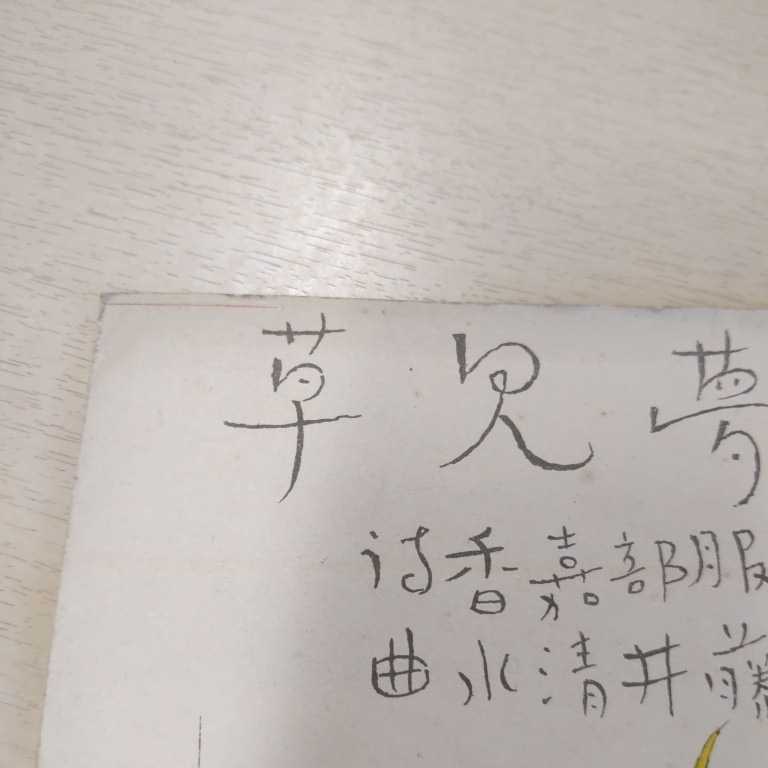 夢見草
服部嘉香詩
藤井清水曲